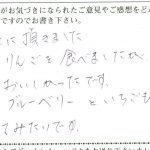 がお気づきになられたご意見やご感想をど
ですのでお書き下さい。
に頂きました
りんごを食べましたが
おいしかったです。
ブルーベリーといちごも
てみたいです。